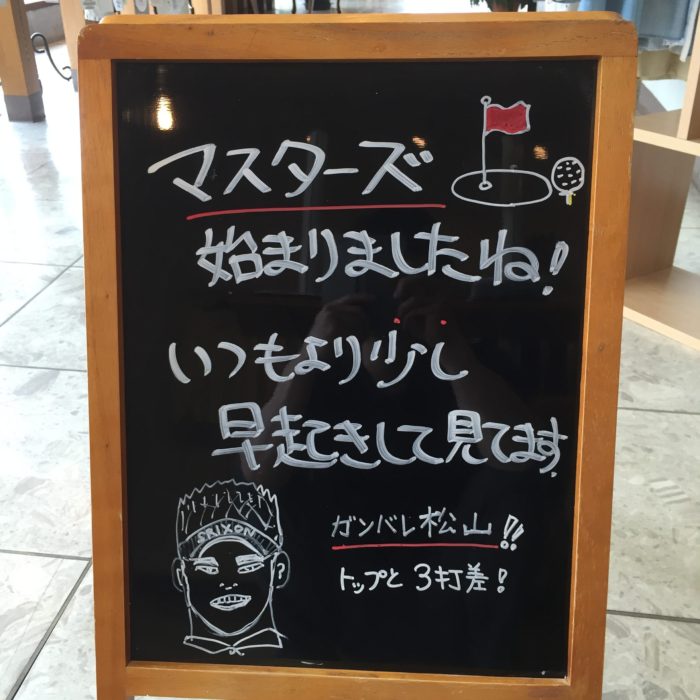 マスターズ
始まりましたね!
いつもより少し
早起きして見てます
SRIXON
ガンバレ松山!!
トップと3打差!